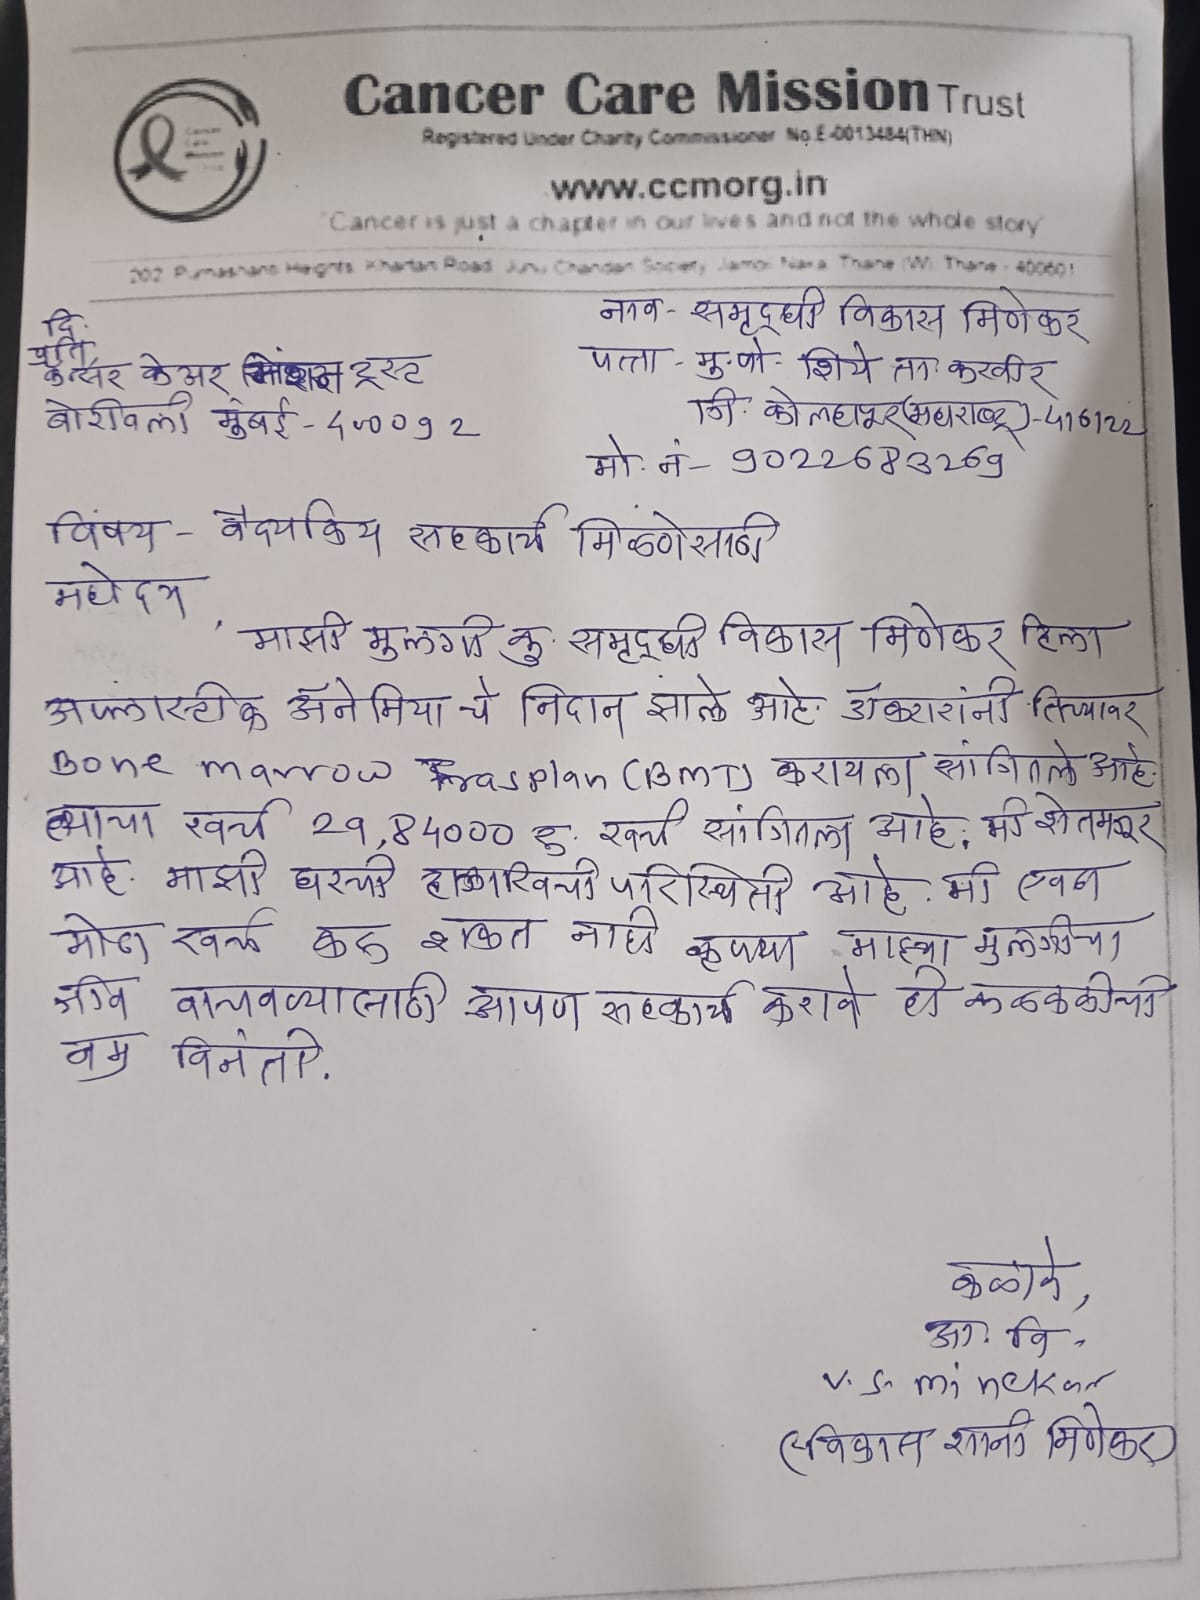 Cancer Care Mission Trust
Registered Under Charity Commissioner No.E-0013484(THN)
www.ccmorg.in
"Cancer is just a chapter in our lives and not the whole story"
202 Heights, Khartan Road, Chandan Society, Naka, Thane (W) Thane - 400601
नाव - समृद्धी विकास मिणेकर
पत्ता - मु.पो. शिये ता. करवीर
जि. कोल्हापूर (महाराष्ट्र) - 416122
मो. नं - 9022683269
दि.
प्रति,
कॅन्सर केअर मिशन ट्रस्ट
बोरीवली मुंबई - 400092
विषय - वैद्यकिय सहकार्य मिळणेसाठी
महोदय,
माझी मुलगी कु. समृद्धी विकास मिणेकर हिला
अप्लास्टीक ॲनेमियाचे निदान झाले आहे. डॉक्टरांनी तिच्यावर
Bone marrow Trasplan (BMT) करायला सांगितले आहे.
त्याचा खर्च 29,84000 रु. खर्च सांगितला आहे. मी शेतमजूर
आहे. माझी घरची हालाखिची परिस्थिती आहे. मी एवढा
मोठा खर्च करु शकत नाही कृपया माझ्या मुलगीचा
जीव वाचवण्यासाठी आपण सहकार्य करावे ही कळकळीची
नम्र विनंती.
कळावे,
आ. वि.
V. S. minekar
(विकास मिणेकर)